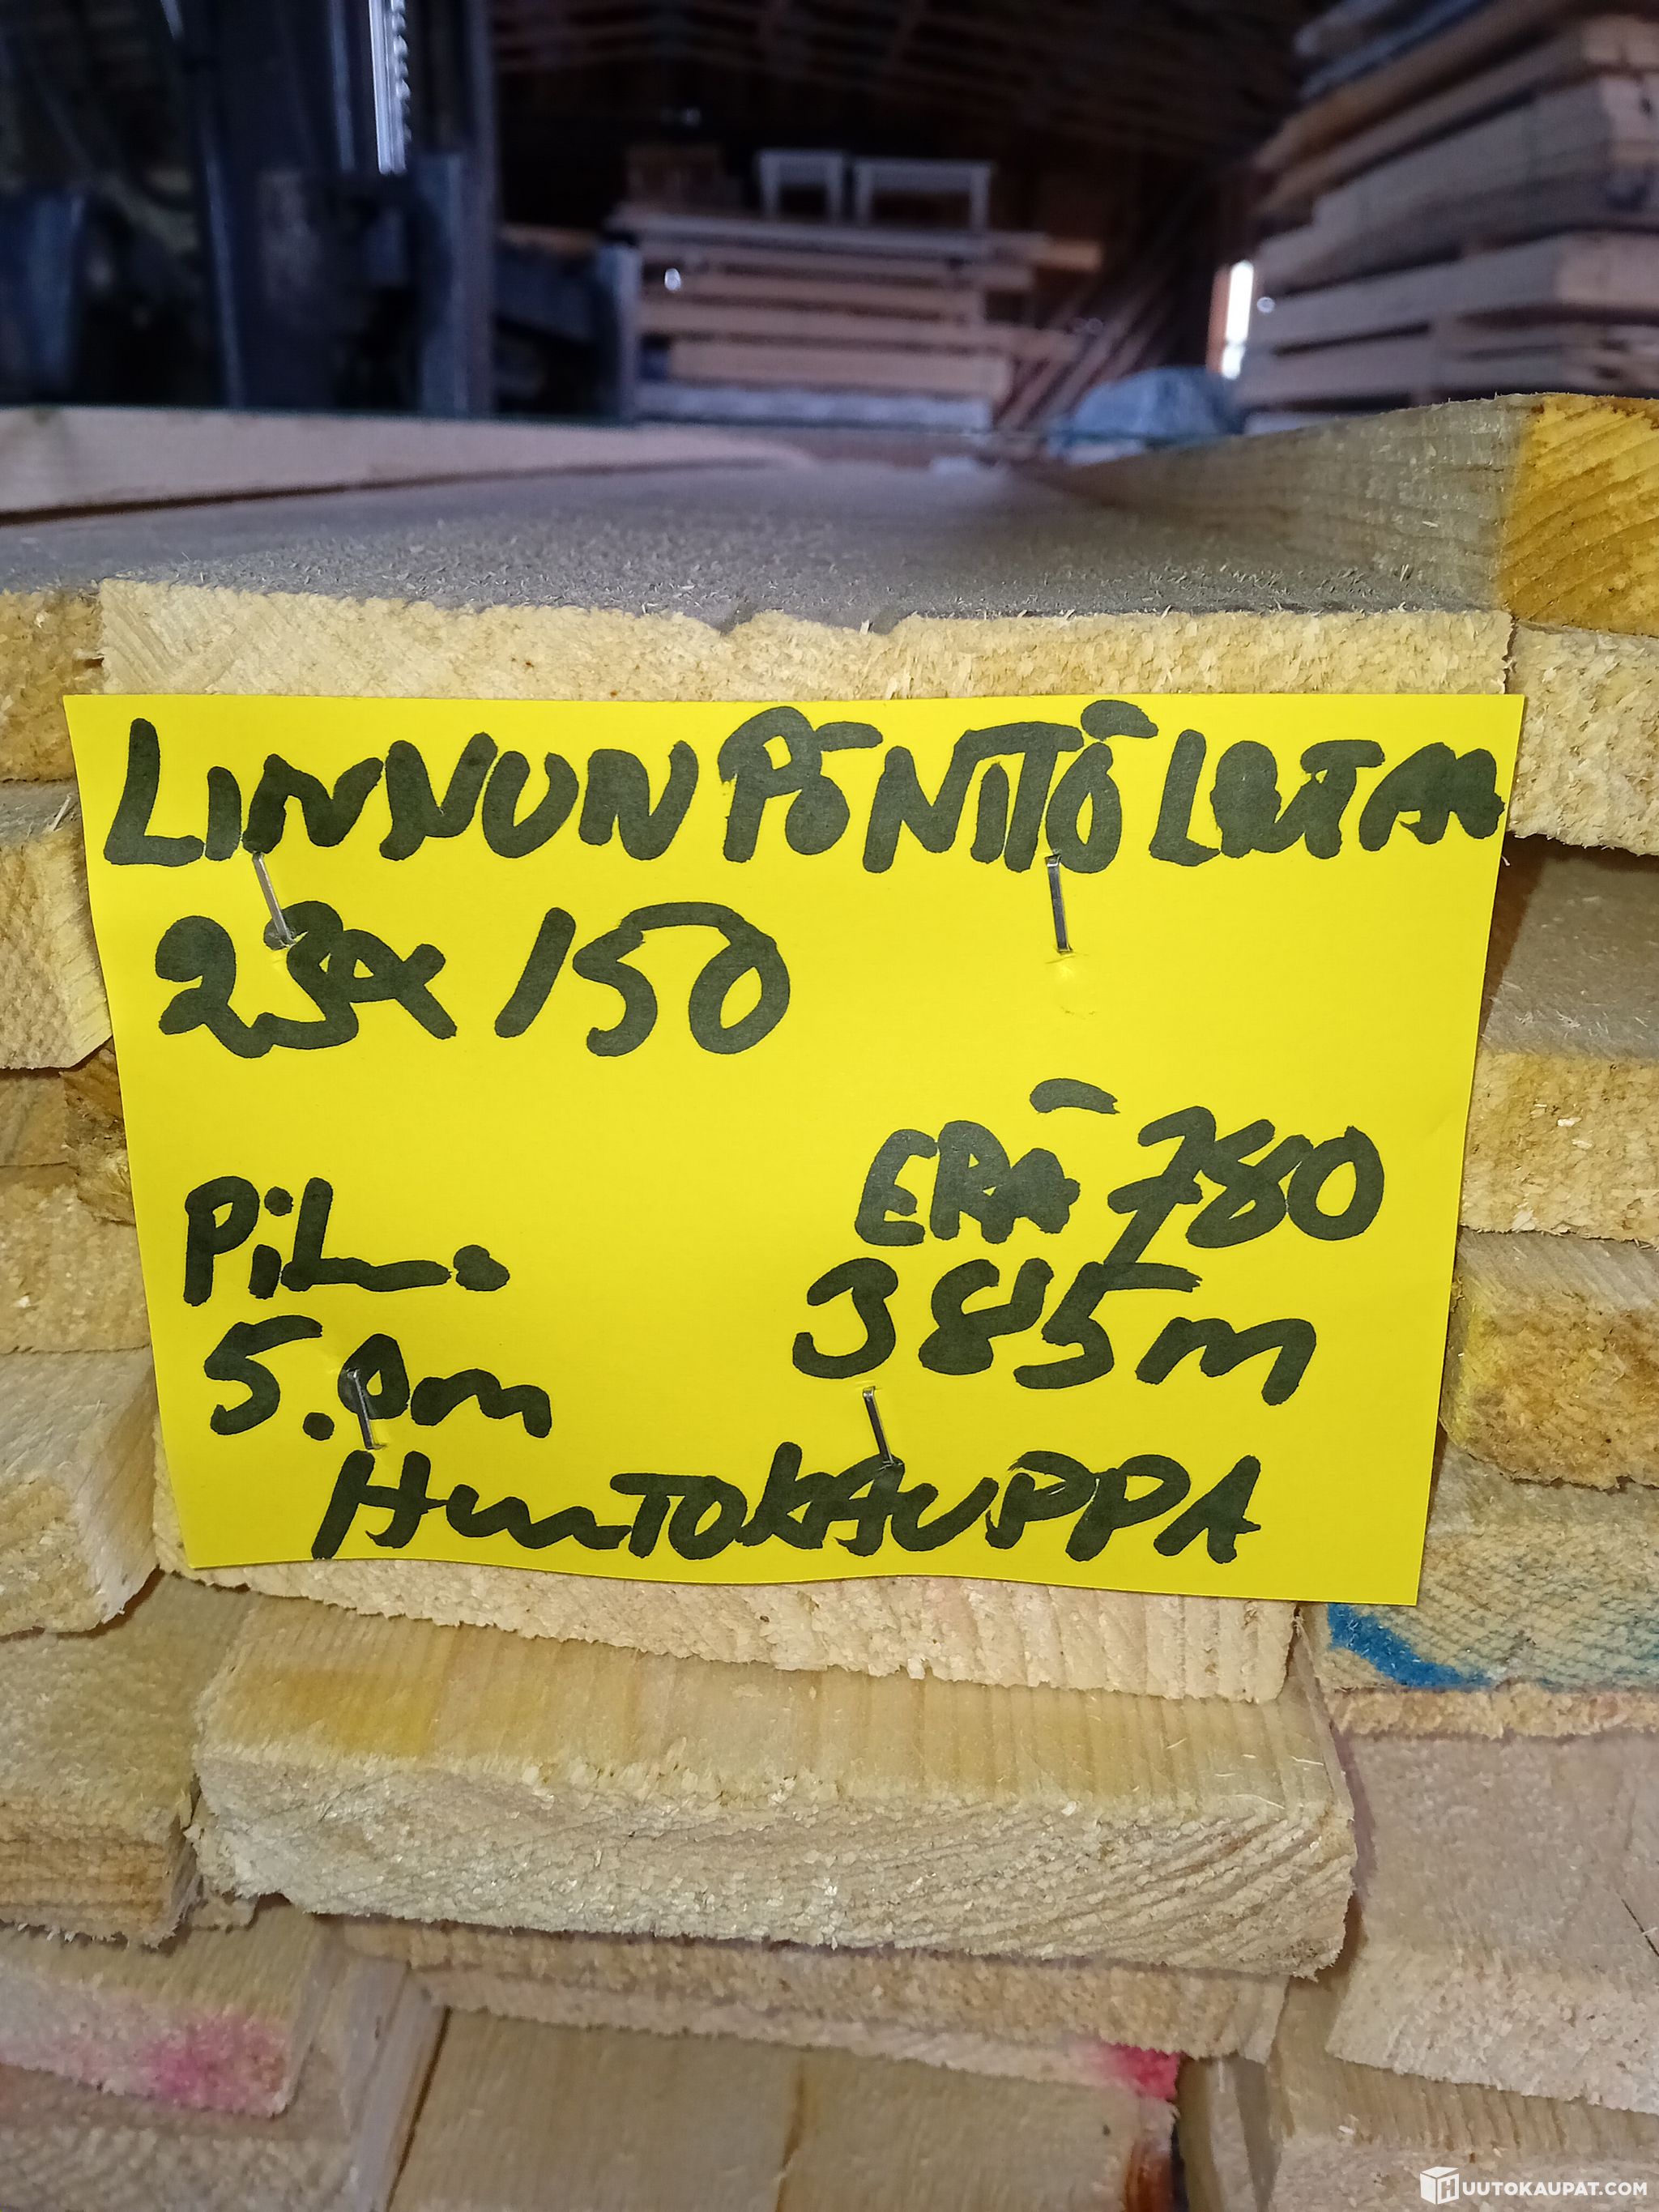 LINNUNPÖNTTÖ LAUTAA
23x 150
ERÄ 780
PiL.
385m
5.0m
HuuTOKAUPPA
HUUTOKAUPAT.COM